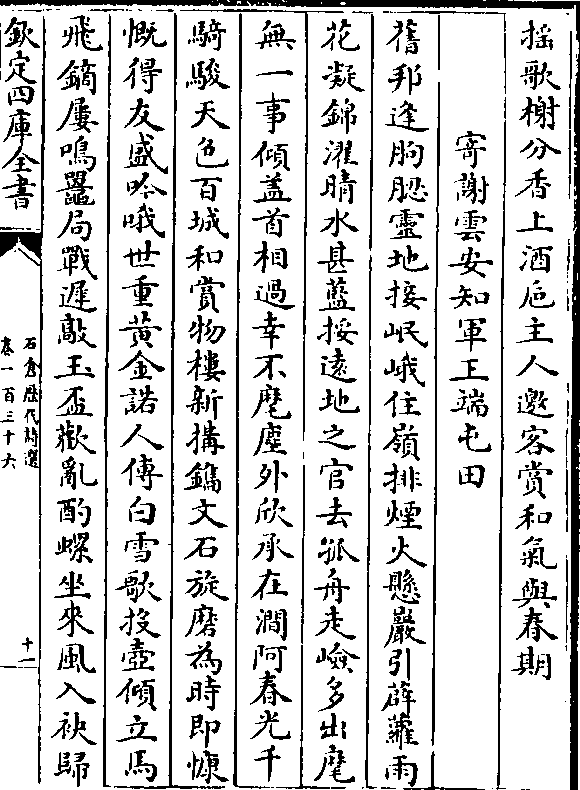 揺歌榭分香上酒巵主人邀客賞和氣與春期
寄謝雲安知軍王端屯田
舊邦逢朐䏰靈地接岷峨住嶺排煙火懸巖引薜蘿雨
花凝錦濯晴水甚藍挼逺地之官去孤舟走嶮多出麾
無一事傾盖首相過幸不麾塵外欣承在澗阿春光千
騎駿天色百城和賞物樓新搆鐫文石旋磨為時即慷
慨得友盛吟哦世重黄金諾人傳白雪歌投壺傾立馬
飛鏑屢鳴鼉局戰遲敲玉盃歡亂酌螺坐來風入袂歸
欽定四庫全書
石倉歷代詩選
卷一百三十六
十一